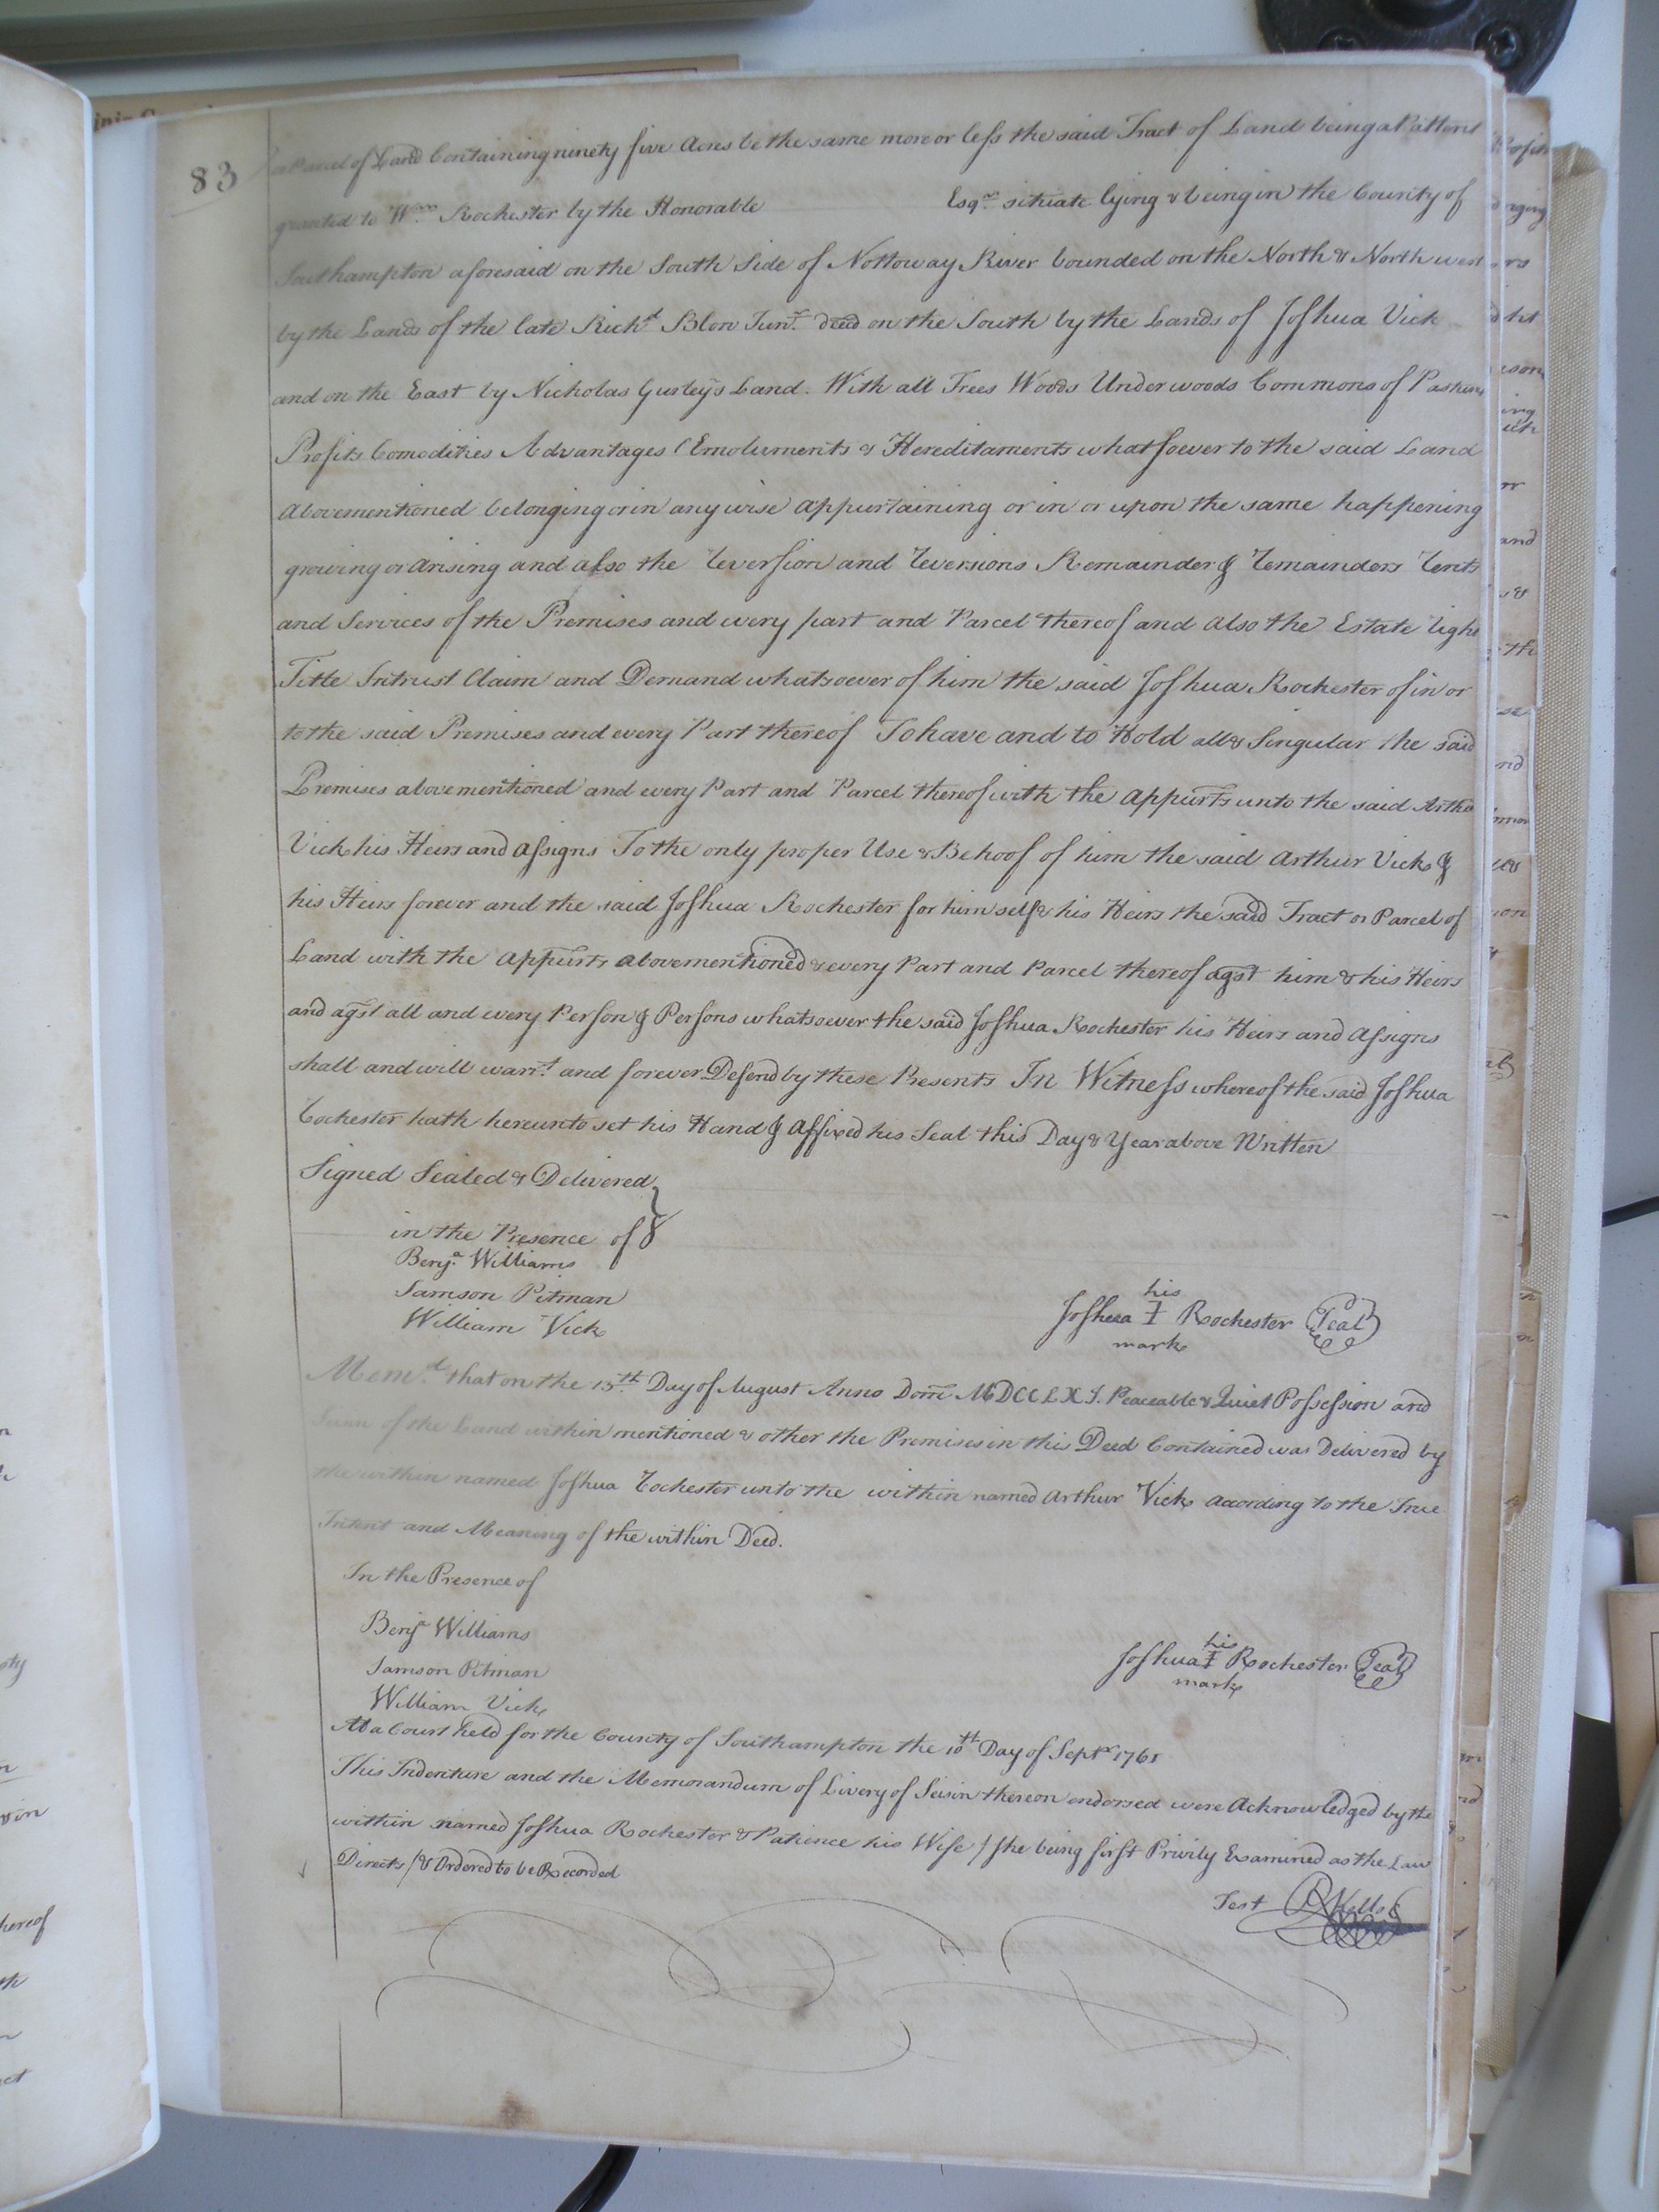 83
Parcel of Land Containing ninety five Acres be the same more or less the said Tract of Land being a Pattent
granted to Wm. Rochester by the Honorable Esqr. situate lying & being in the County of
Southampton aforesaid on the South Side of Nottoway River bounded on the North & North west
by the Lands of the late Richd. Blow Junr. deced on the South by the Lands of Joshua Vick
and on the East by Nicholas Gurley's Land. With all Trees Woods Underwoods Commons of Pasture
Profits Comodities Advantages Emoluments & Hereditaments whatsoever to the said Land
Abovementioned belonging or in any wise Appurtaining or in or upon the same happening
growing or Arising and also the Reversion and Reversions Remainder & Remainders Rents
and Services of the Premises and every part and Parcel thereof and Also the Estate Right
Title Intrust Claim and Demand whatsoever of him the said Joshua Rochester of in or
to the said Premises and every Part thereof To have and to Hold all & Singular the said
Premises abovementioned and every Part and Parcel thereof with the Appurts unto the said Arthur
Vick his Heirs and Assigns To the only proper Use & Behoof of him the said Arthur Vick &
his Heirs forever and the said Joshua Rochester for himself & his Heirs the said Tract or Parcel of
Land with the Appurts Abovementioned & every Part and Parcel thereof agst him & his Heirs
and agst all and every Person & Persons whatsoever the said Joshua Rochester his Heirs and Assigns
shall and will warrt. and forever Defend by these Presents In Witness whereof the said Joshua
Rochester hath hereunto set his Hand & Affixed his Seal this Day & Year above Written
Signed Sealed & Delivered
in the Presence of
Benja. Williams
Samson Pitman
William Vick
his
Joshua I Rochester Seal
mark
Memd. that on the 15th. Day of August Anno Dom MDCCLXI. Peaceable & Quiet Possession and
Seisin of the Land within mentioned & other the Premises in this Deed Contained was Delivered by
the within named Joshua Rochester unto the within named Arthur Vick According to the True
Intent and Meaning of the within Deed.
In the Presence of
Benja Williams
Samson Pitman
William Vick
his
Joshua I Rochester Seal
mark
At a Court held for the County of Southampton the 10th Day of Septr 1761
This Indenture and the Memorandum of Livery of Seisin thereon endorsed were Acknowledged by the
within named Joshua Rochester & Patience his Wife / she being first Privily Examined as the Law
Directs / & Ordered to be Recorded
Test R Kello